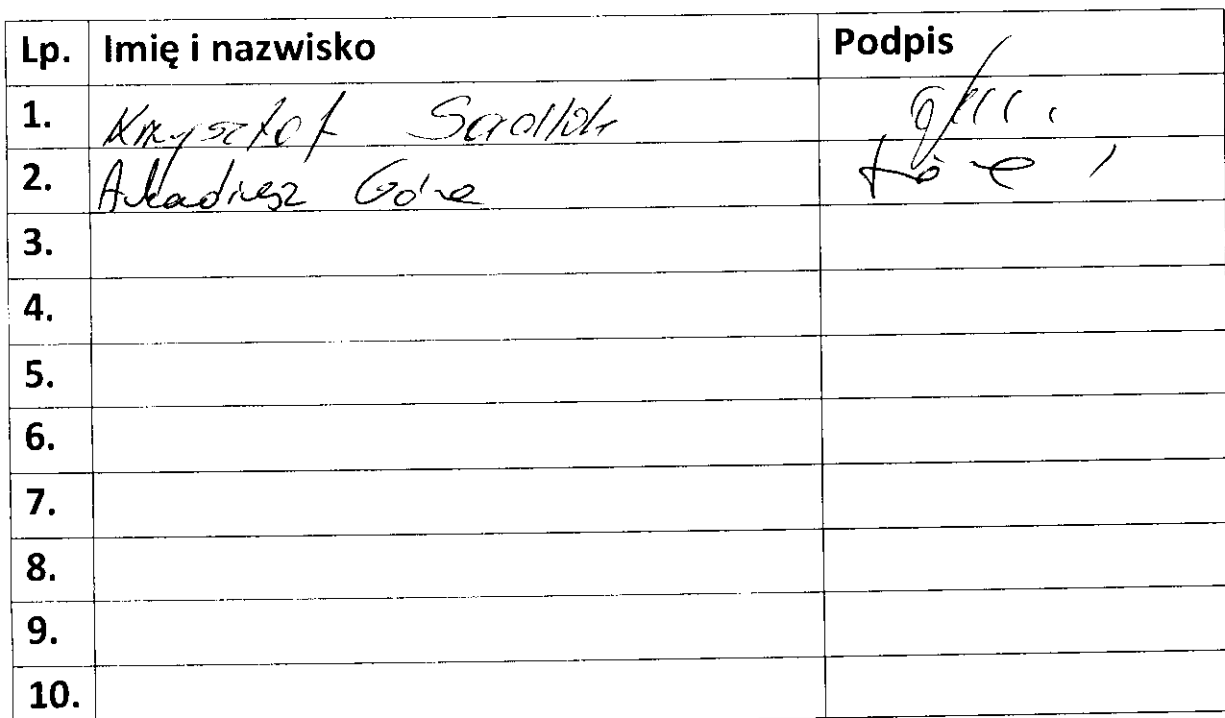 Lp. Imię i nazwisko Podpis
1. Krzysztof Sadlok
2. Arkadiusz Góra
3.
4.
5.
6.
7.
8.
9.
10.